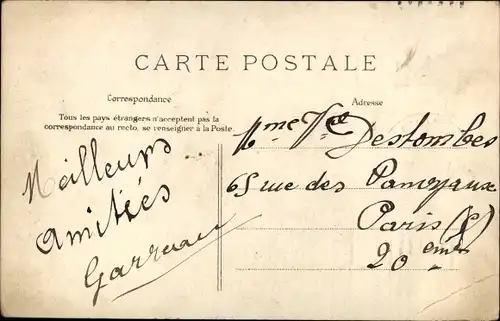 CARTE POSTALE
Correspondance
Tous les pays étrangers n'acceptent pas la
correspondance au recto, se renseigner à la Poste
Meilleurs
amitiés
Garreau
Adresse
Mme Vve Destombes
65 rue des Panoyaux
Paris
20 eme